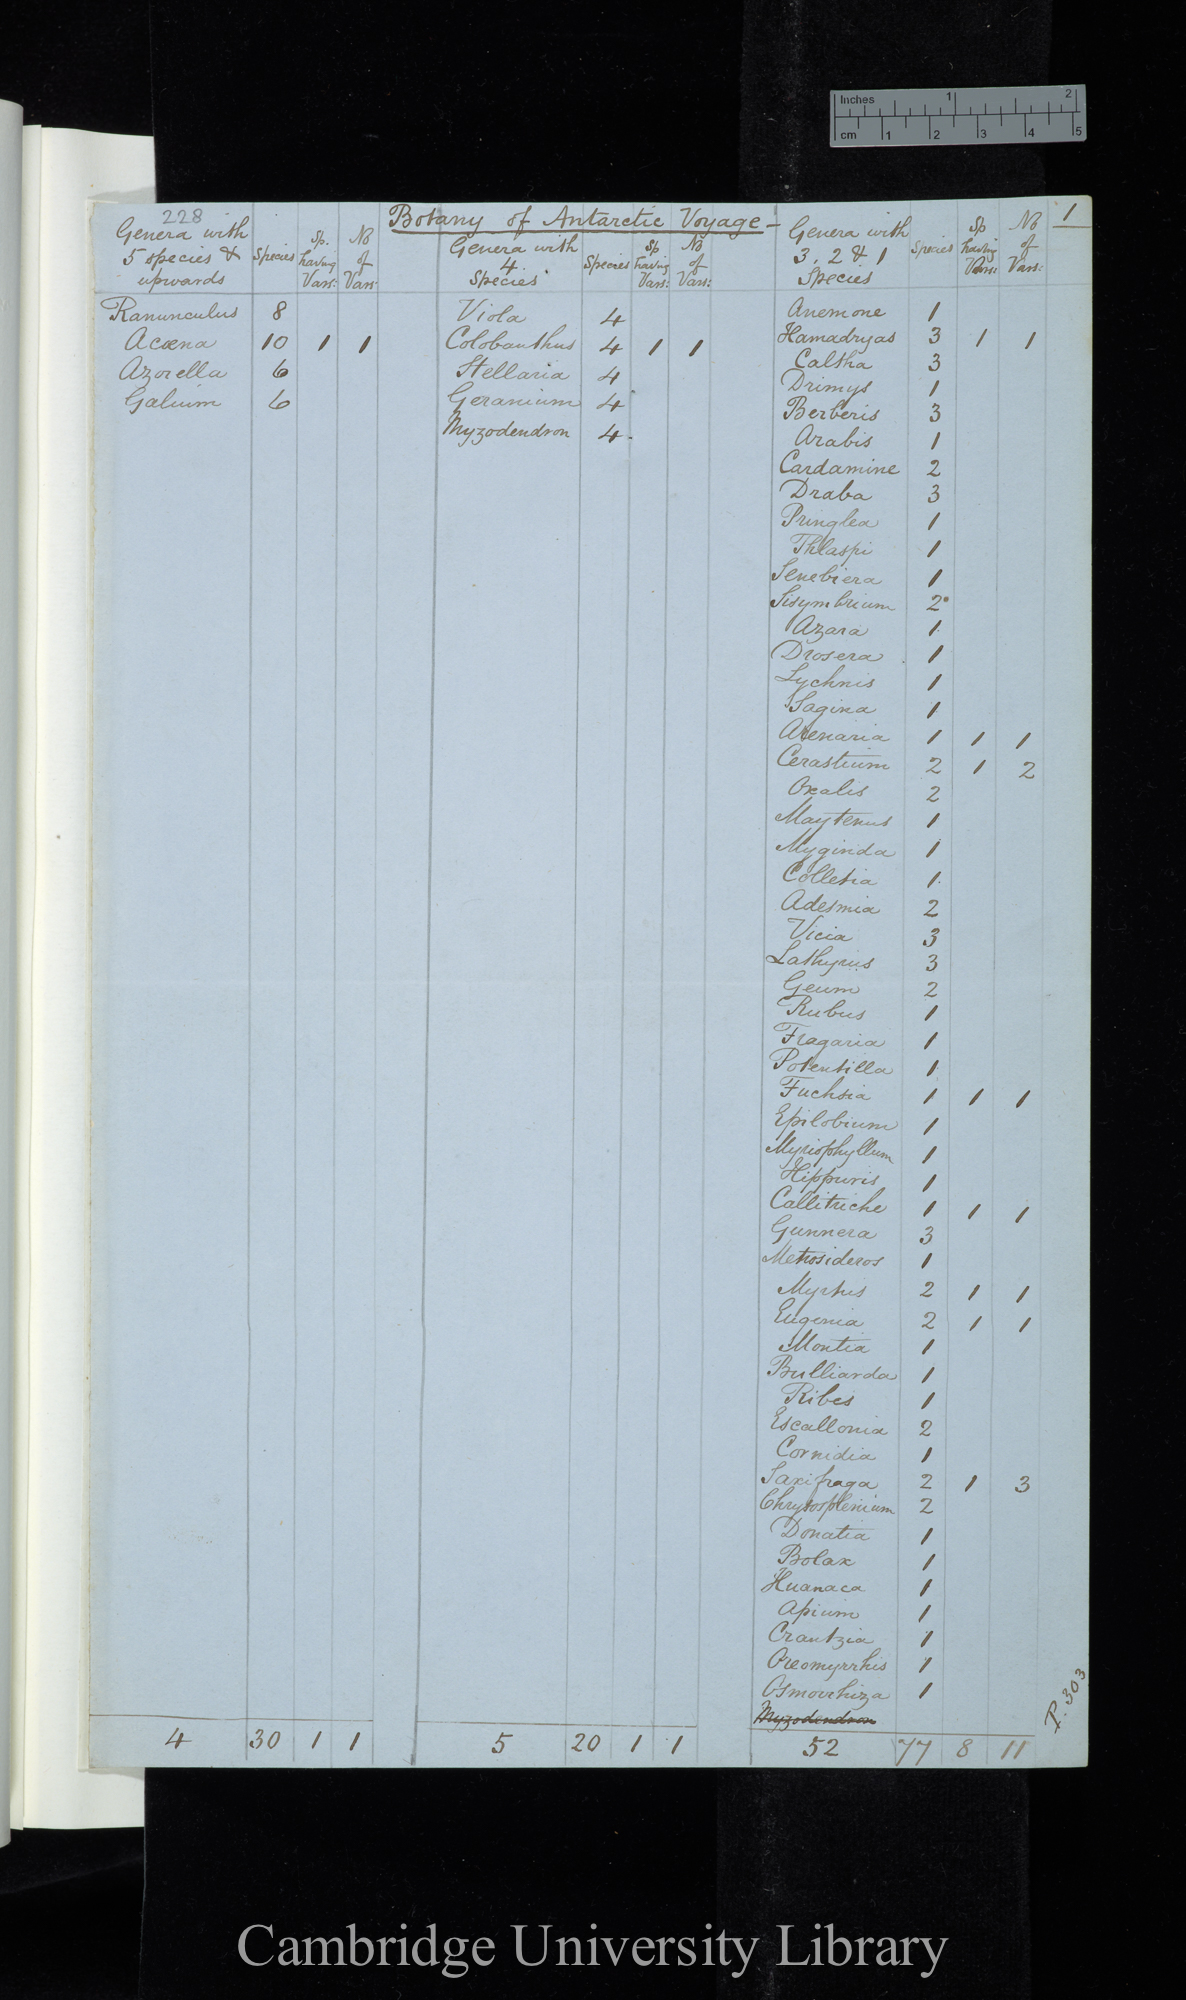 Inches 1 2
cm 1 2 3 4 5
228
Botany of Antarctic Voyage -
1
Genera with 5 species & upwards | Species | Sp. having Vars: | No of Vars:
Ranunculus 8
Acæna 10 1 1
Azorella 6
Galium 6
4 30 1 1
Genera with 4 Species | Species | Sp having Vars: | No of Vars:
Viola 4
Colobanthus 4 1 1
Stellaria 4
Geranium 4
Myzodendron 4
5 20 1 1
Genera with 3, 2 & 1 Species | Species | Sp having Vars: | No of Vars:
Anemone 1
Hamadryas 3 1 1
Caltha 3
Drimys 1
Berberis 3
Arabis 1
Cardamine 2
Draba 3
Pringlea 1
Thlaspi 1
Senebiera 1
Sisymbrium 2
Azara 1
Drosera 1
Lychnis 1
Sagina 1
Arenaria 1 1 1
Cerastium 2 1 2
Oxalis 2
Maytenus 1
Myginda 1
Colletia 1
Adesmia 2
Vicia 3
Lathyrus 3
Geum 2
Rubus 1
Fragaria 1
Potentilla 1
Fuchsia 1 1 1
Epilobium 1
Myriophyllum 1
Hippuris 1
Callitriche 1 1 1
Gunnera 3
Metrosideros 1
Myrtus 2 1 1
Eugenia 2 1 1
Montia 1
Bulliarda 1
Ribes 1
Escallonia 2
Cornidia 1
Saxifraga 2 1 3
Chrysosplenium 2
Donatia 1
Bolax 1
Huanaca 1
Apium 1
Crantzia 1
Oreomyrrhis 1
Osmorrhiza 1
Myzodendron
52 77 8 11
P. 303
Cambridge University Library